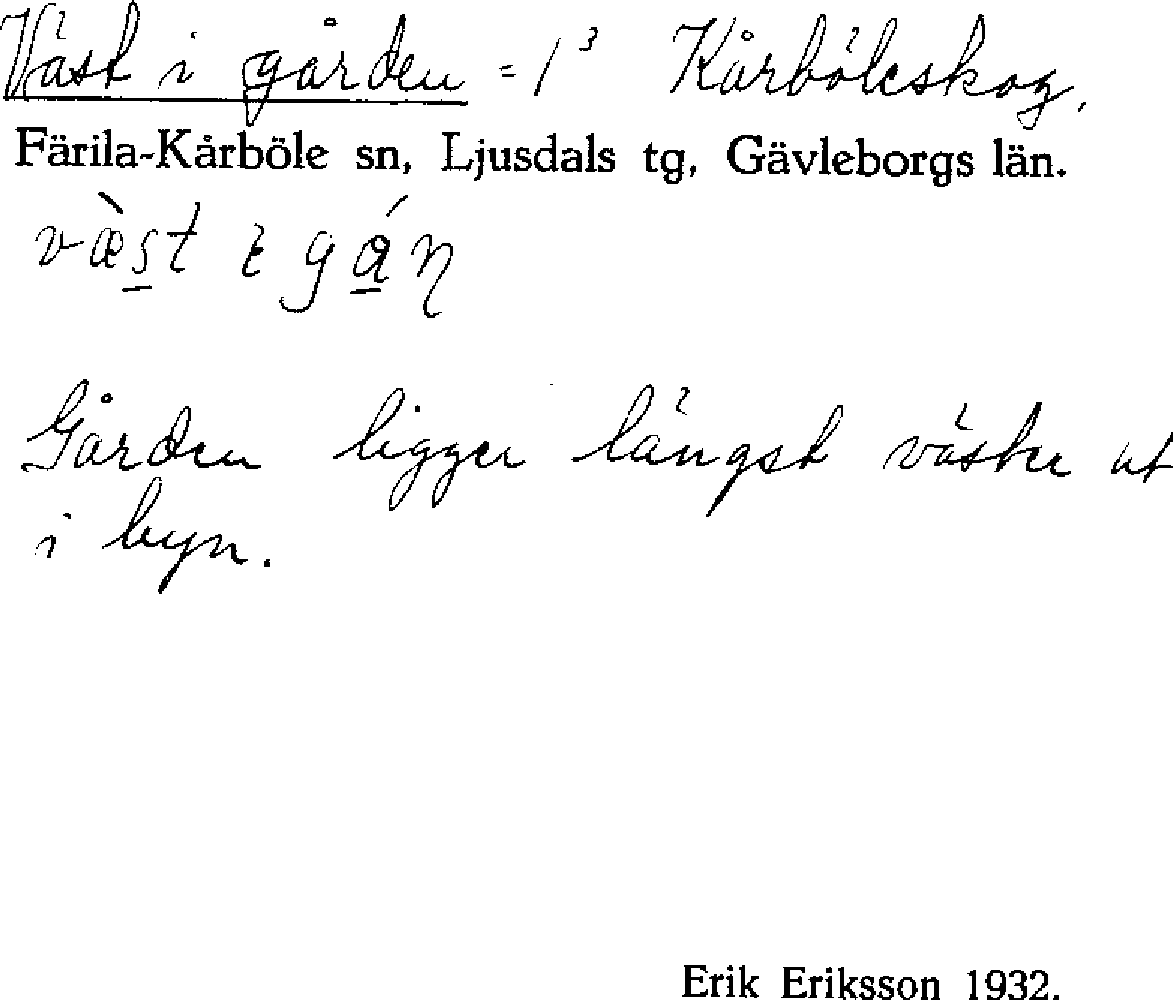 Väst i gården = 1³ Kårböleskog.
Färila-Kårböle sn, Ljusdals tg, Gävleborgs län.
væ̀st ɩ gá̱ɳ
Gården ligger längst väster ut
i byn.
Erik Eriksson 1932.